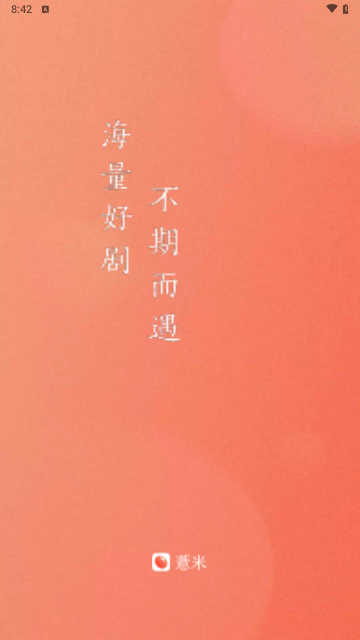 8:42
海量好剧
不期而遇
薏米